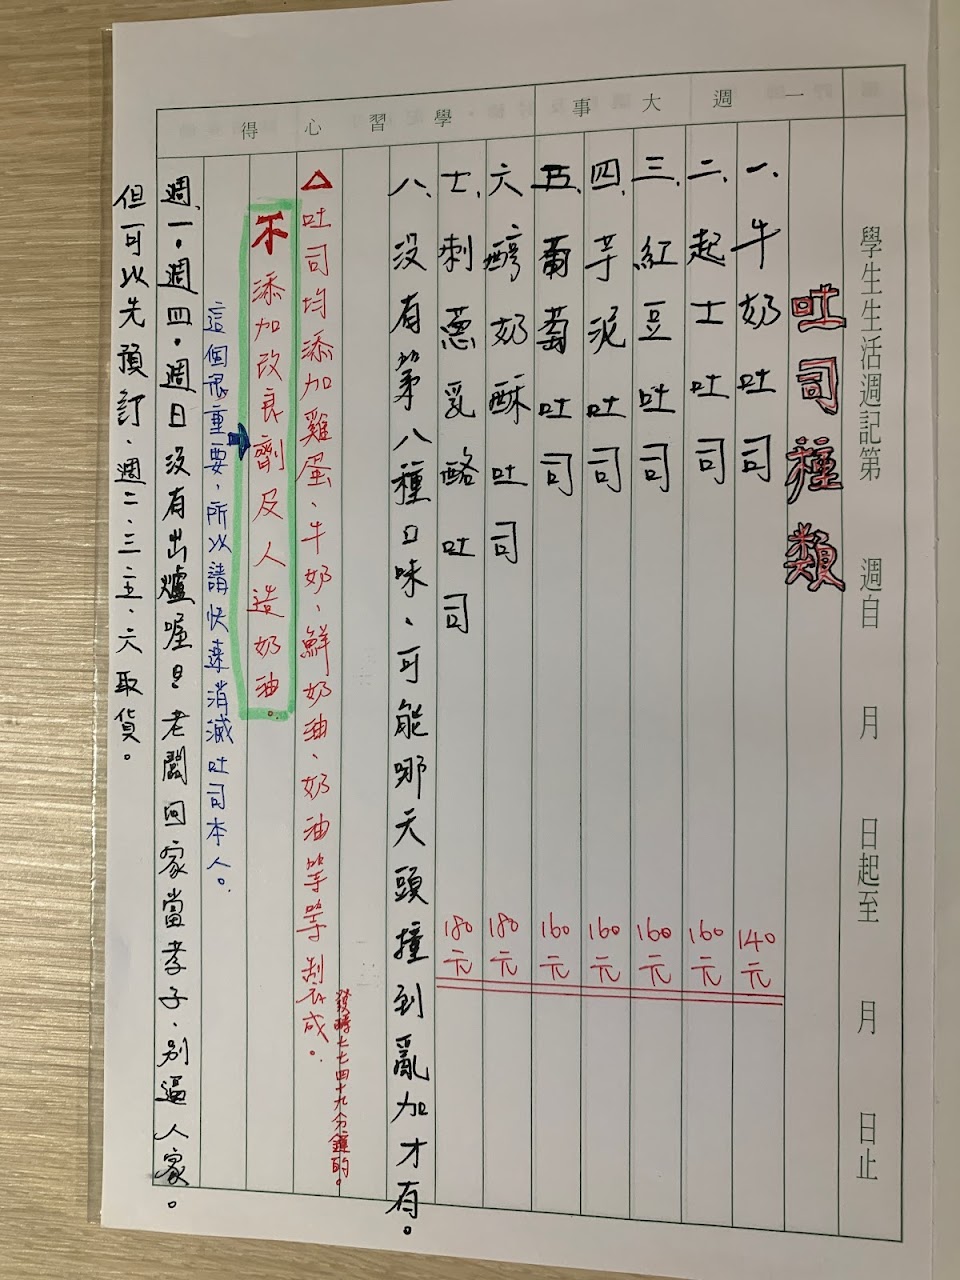 學生生活週記第　週自　月　日起至　月　日止
一週大事
學習心得
吐司種類
一、牛奶吐司 140元
二、起士吐司 160元
三、紅豆吐司 160元
四、芋泥吐司 160元
五、葡萄吐司 160元
六、醇奶酥吐司 180元
七、刺蔥乳酪吐司 180元
八、沒有第八種口味、可能哪天頭撞到亂加才有。
發酵七七四十九分鐘的。
△吐司均添加雞蛋、牛奶、鮮奶油、奶油等等製成。
不添加改良劑及人造奶油。
這個很重要，所以請快來消滅吐司本人。
週一．週四．週日沒有出爐喔！老闆回家當孝子．別逼人家。
但可以先預訂、週二、三、五、六取貨。